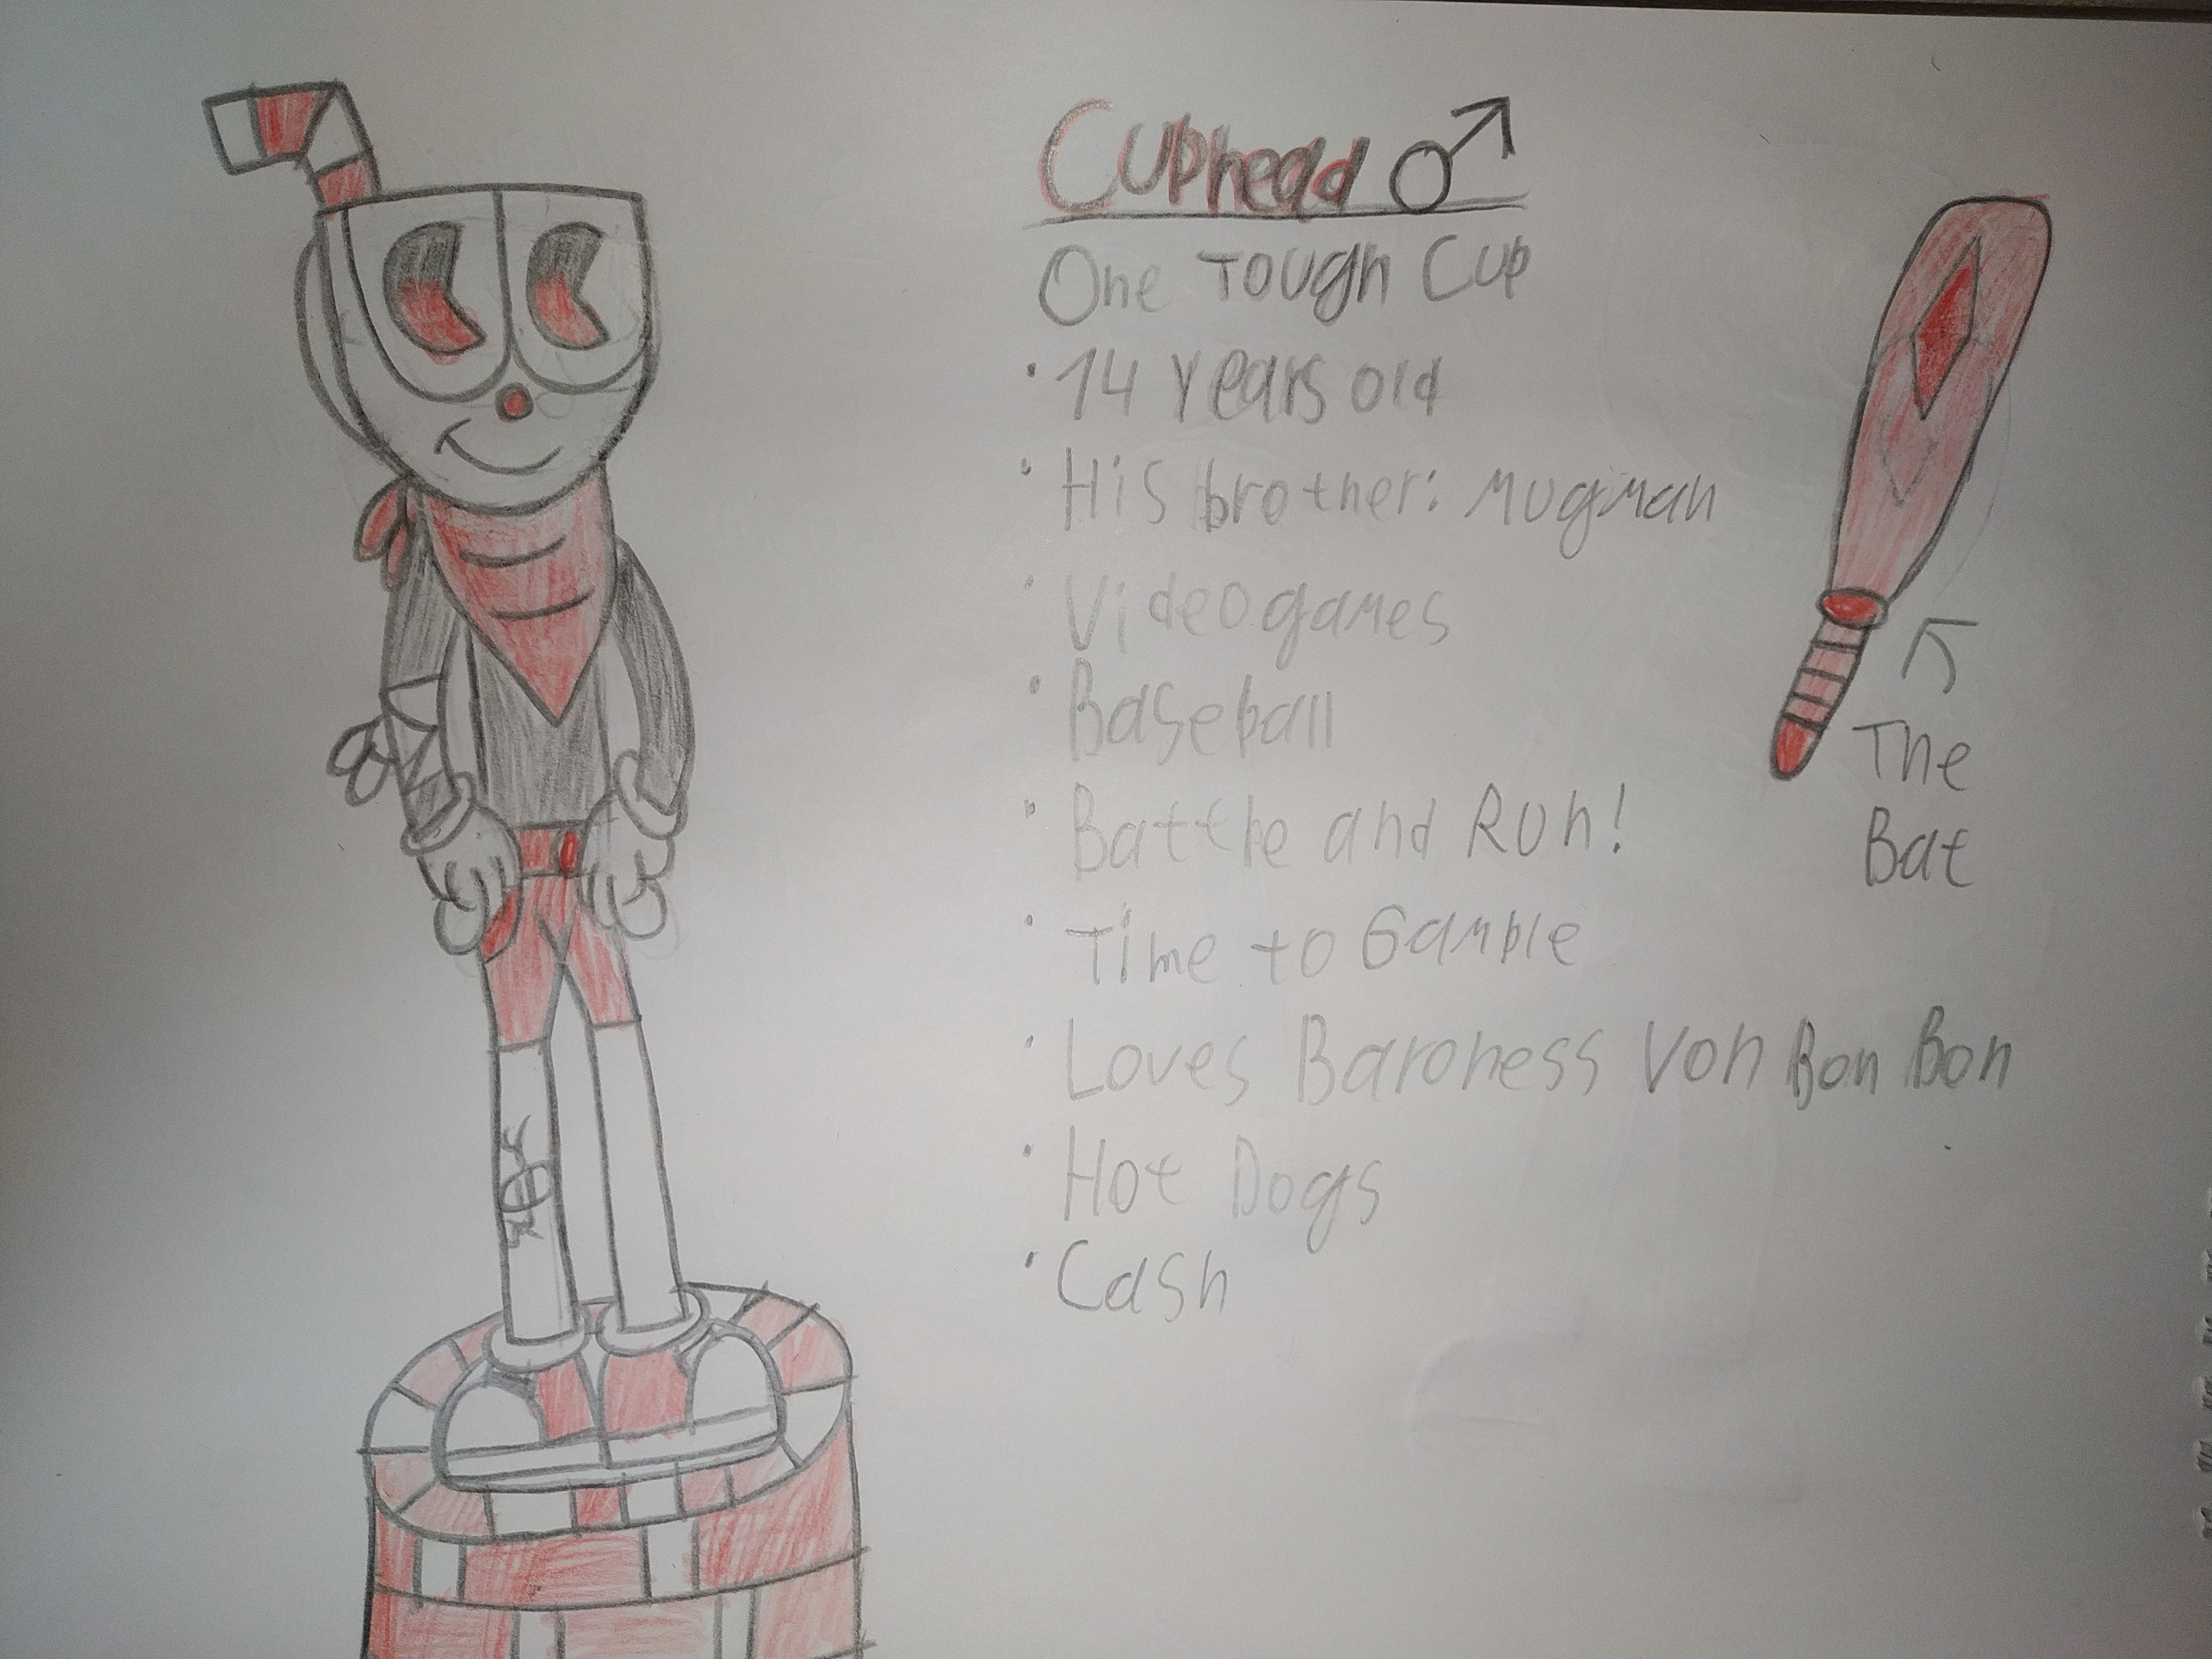 Cuphead ♂
One Tough Cup
• 14 years old
• His brother: Mugman
• Videogames
• Baseball
• Battle and Run!
• Time to Gamble
• Loves Baroness Von Bon Bon
• Hot Dogs
• Cash
The
Bat